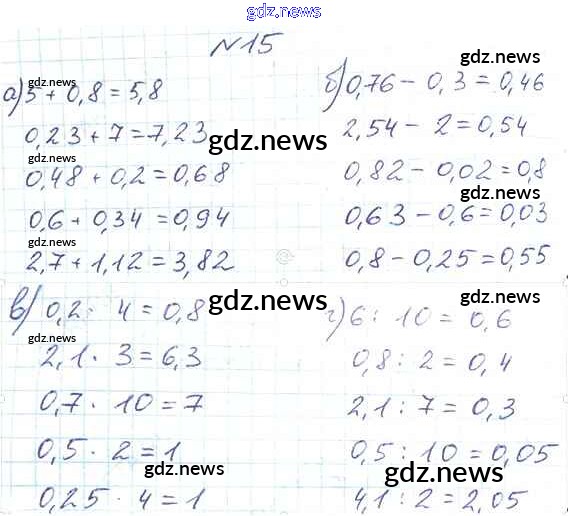 gdz.news
№15
gdz.news
gdz.news
а) 5 + 0,8 = 5,8
0,23 + 7 = 7,23
gdz.news
gdz.news
0,48 + 0,2 = 0,68
0,6 + 0,34 = 0,94
gdz.news
2,7 + 1,12 = 3,82
б) 0,76 - 0,3 = 0,46
2,54 - 2 = 0,54
0,82 - 0,02 = 0,8
gdz.news
0,63 - 0,6 = 0,03
0,8 - 0,25 = 0,55
в) 0,2 · 4 = 0,8
gdz.news
gdz.news
2,1 · 3 = 6,3
0,7 · 10 = 7
0,5 · 2 = 1
gdz.news
0,25 · 4 = 1
gdz.news
г) 6 : 10 = 0,6
0,8 : 2 = 0,4
2,1 : 7 = 0,3
0,5 : 10 = 0,05
gdz.news
4,1 : 2 = 2,05